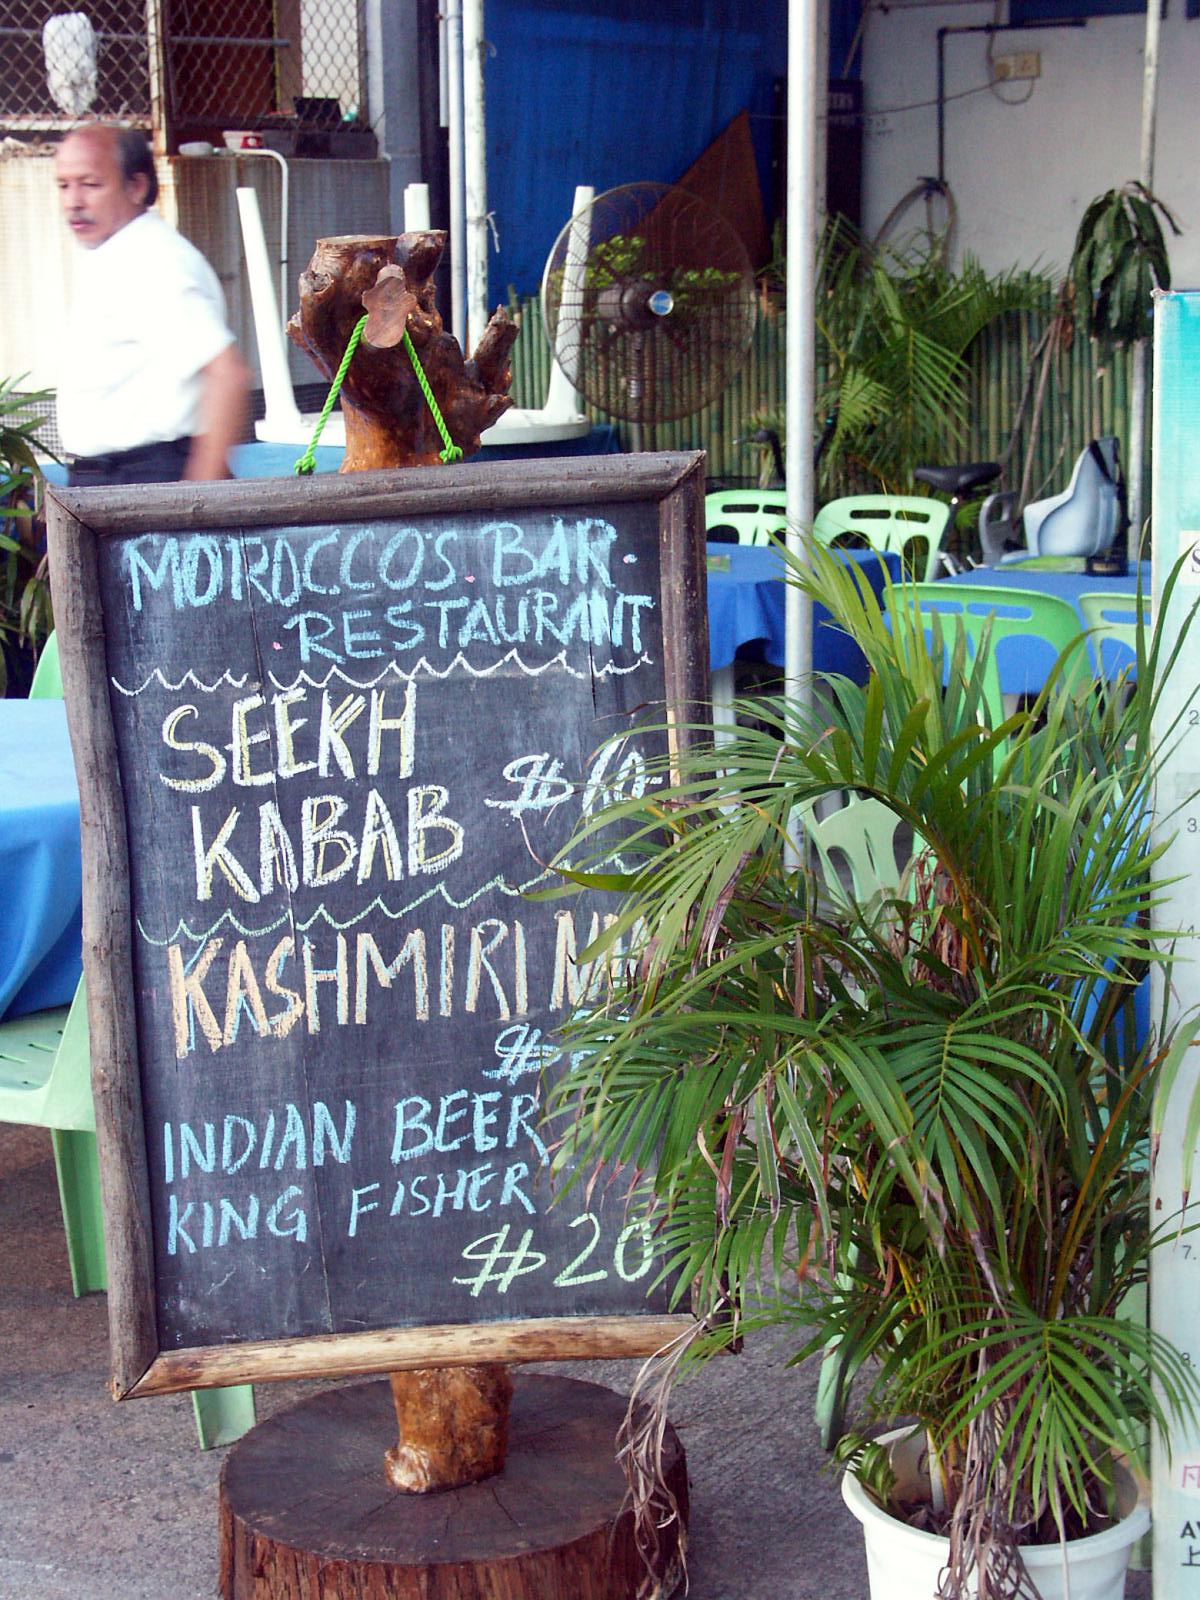 MOROCCO'S BAR.
. RESTAURANT
SEEKH
KABAB
KASHMIRI
INDIAN BEER
KING FISHER
$20